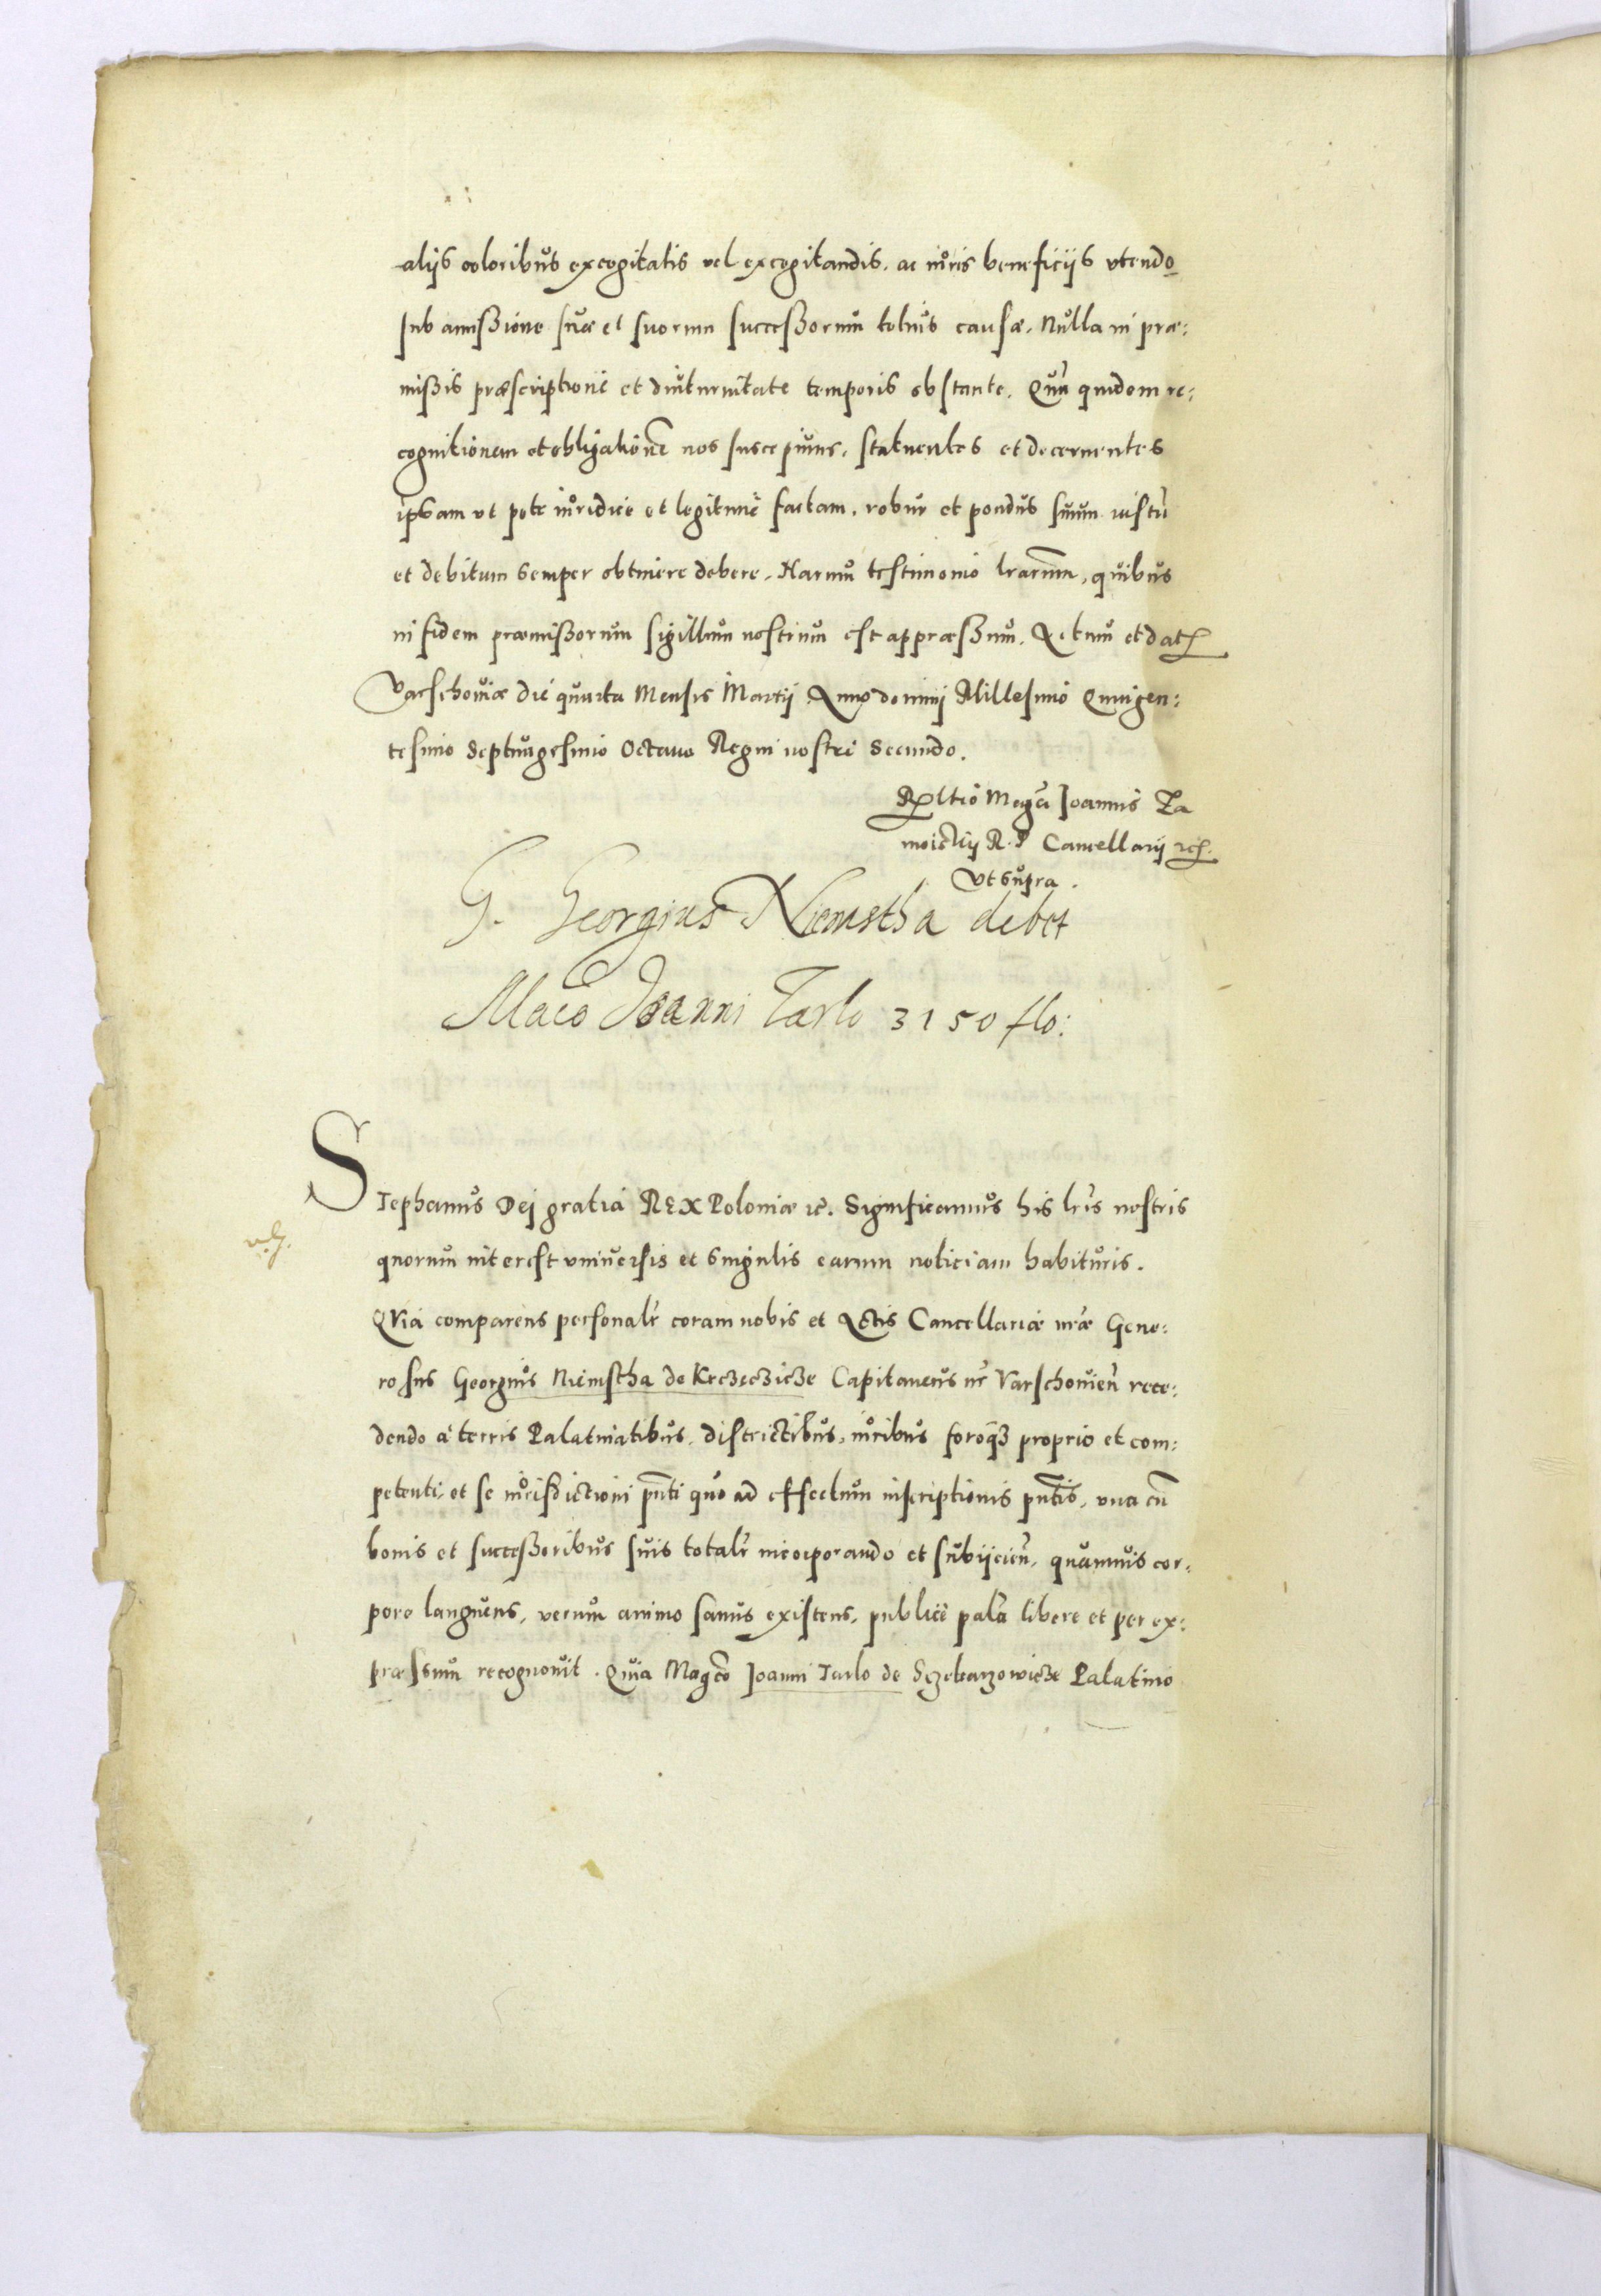 alijs coloribus excogitatis vel excogitandis, ac iuris beneficijs vtendo
sub amißione suæ et suorum succeßorum totius causæ. Nulla in præ:
mißis præscriptione et diuturnitate temporis obstante. Quã quidem re:
cognitionem et obligationẽ nos suscepimus, statuentes et decernentes
ipsam ut pote iuridice et legitime factam, robur et pondus suum iustũ
et debitum semper obtinere debere. Harum testimonio lrarum, quibus
in fidem præmißorum sigillum nostrum est appræßum. Actum et dat
Varschouiæ die quarta Mensis Martij Anno domini Millesimo Quingen:
tesimo Septuagesimo Octauo Regni nostri Secundo.
Rltio Magci Joannis Za
moiskij R. P Cancellarij etc.
Vt supra.
G. Georgius Niemstha debet
Mgco Joanni Tarlo 3150 flo:
Stephanus Dei gratia REX Poloniæ etc. Significamus his lris nostris
quorum interest vniuersis et singulis earum noticiam habituris.
Quia comparens personalr coram nobis et Actis Cancellariæ nræ Gene:
rosus Georgius Niemstha de Krczecicze Capitaneus nr Varschouien rece:
dendo a terris Palatinatibus, districtibus, iuribus foroq3 proprio et com:
petenti, et se iurisdictioni pñti quo ad effectum inscriptionis pñtis, vna cũ
bonis et succeßoribus suis totalr incorporando et subijcien, quamuis cor:
pore languens, verum animo sanus existens, publice palã libere et per ex:
præssum recognouit. Quia Magco Joanni Tarlo de Sczekarzowicze Palatino